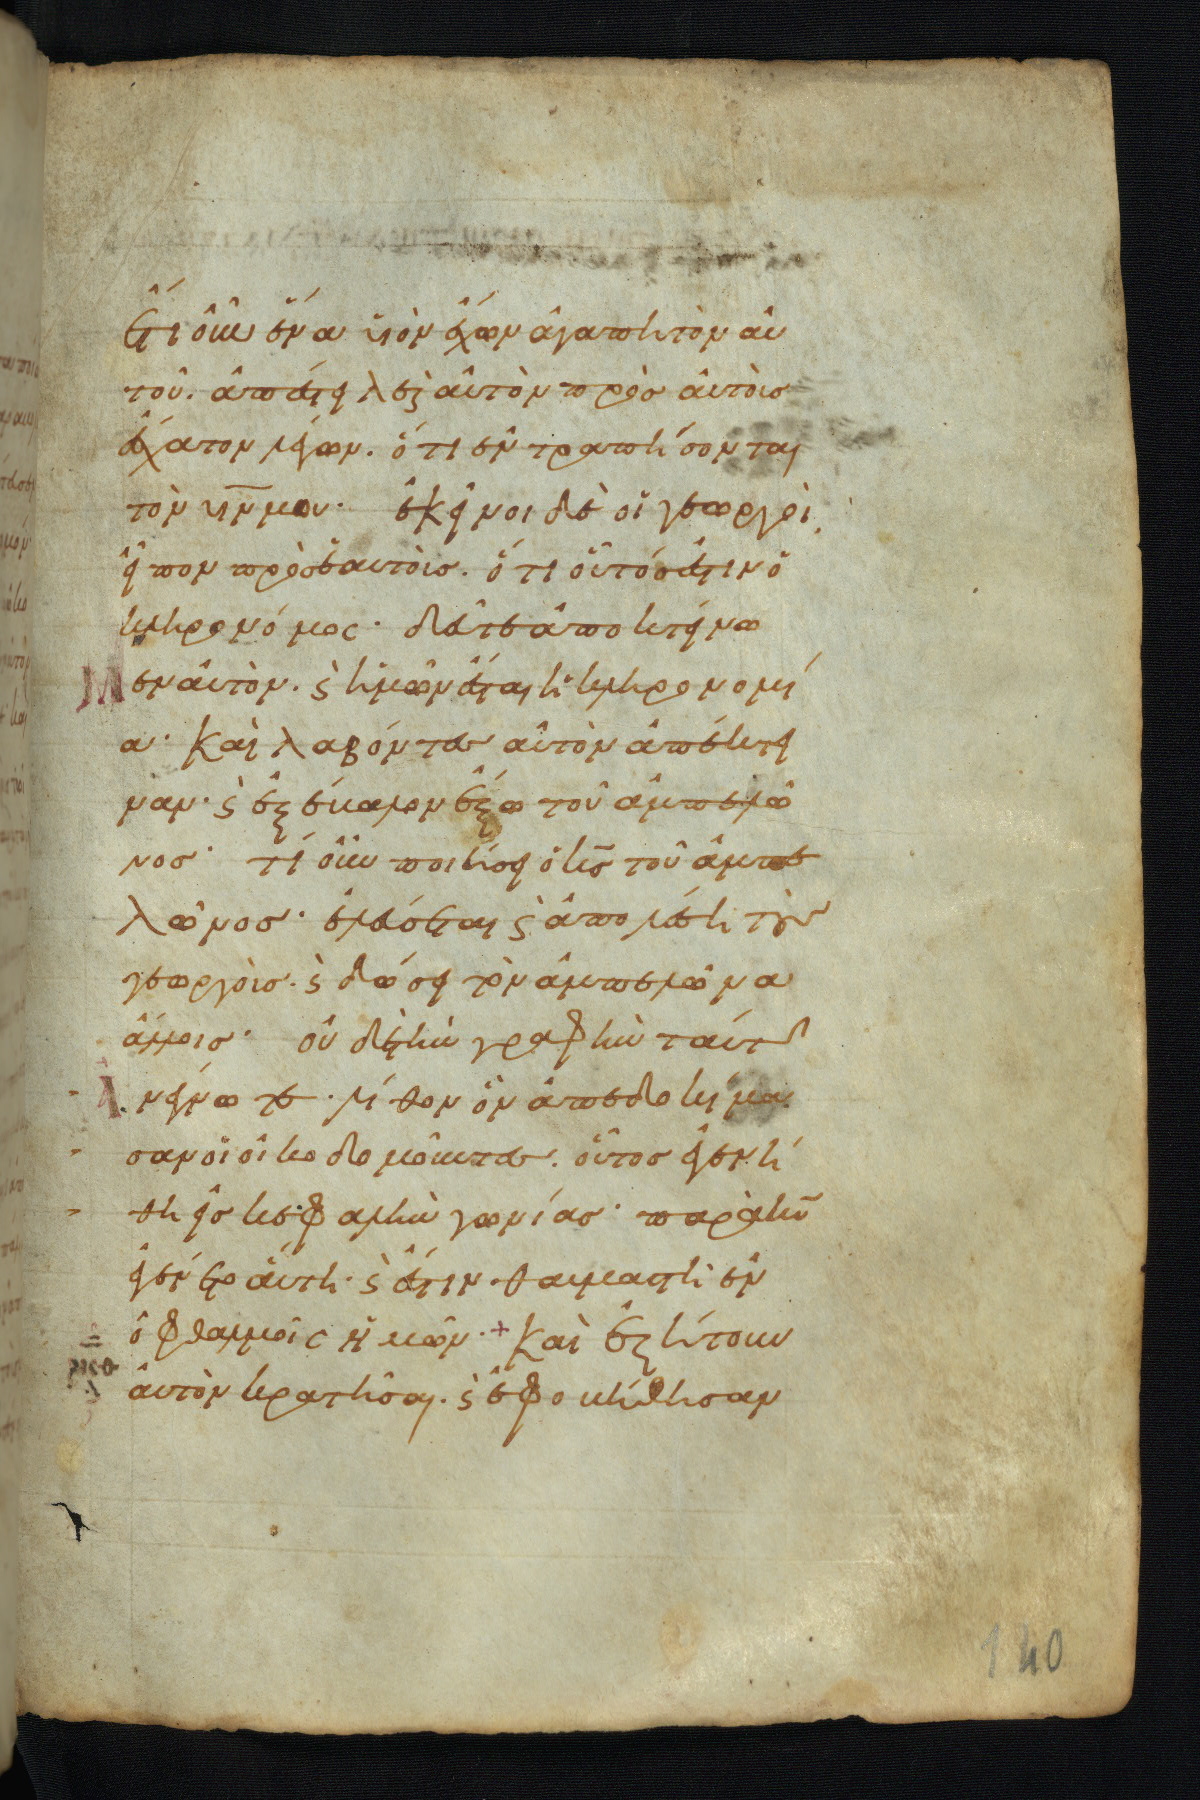 ἔτι οὖν ἕνα υἱὸν ἔχων ἀγαπητὸν αὐ
τοῦ. ἀπέστειλε καὶ αὐτὸν πρὸς αὐτοὺς
ἔσχατον λέγων. ὅτι ἐντραπήσονται
τὸν υἱόν μου· ἐκεῖνοι δὲ οἱ γεωργοὶ
εἶπον πρὸς ἑαυτούς. ὅτι οὗτός ἐστιν ὁ
κληρονόμος· δεῦτε ἀποκτείνω
μεν αὐτὸν. ϗ ἡμῶν ἔσται ἡ κληρονομί
α· Καὶ λαβόντες αὐτὸν ἀπέκτει
ναν· ϗ ἐξέβαλον ἔξω τοῦ ἀμπελῶ
νος· τί οὖν ποιήσει ὁ κς̄ τοῦ ἀμπε
λῶνος· ἐλεύσεται ϗ ἀπολέσει τοὺς
γεωργούς. ϗ δώσει τὸν ἀμπελῶνα
ἄλλοις· οὐδὲ τὴν γραφὴν ταύτην
ἀνέγνωτε. λίθον ὃν ἀπεδοκίμα
σαν οἱ οἰκοδομοῦντες. οὗτος ἐγενή
θη εἰς κεφαλὴν γωνίας· παρὰ κῡ
ἐγένετο αὕτη· ϗ ἔστιν θαυμαστὴ ἐν
ὀφθαλμοῖς ἡμῶν· + Καὶ ἐζήτουν
αὐτὸν κρατῆσαι. ϗ ἐφοβήθησαν
140